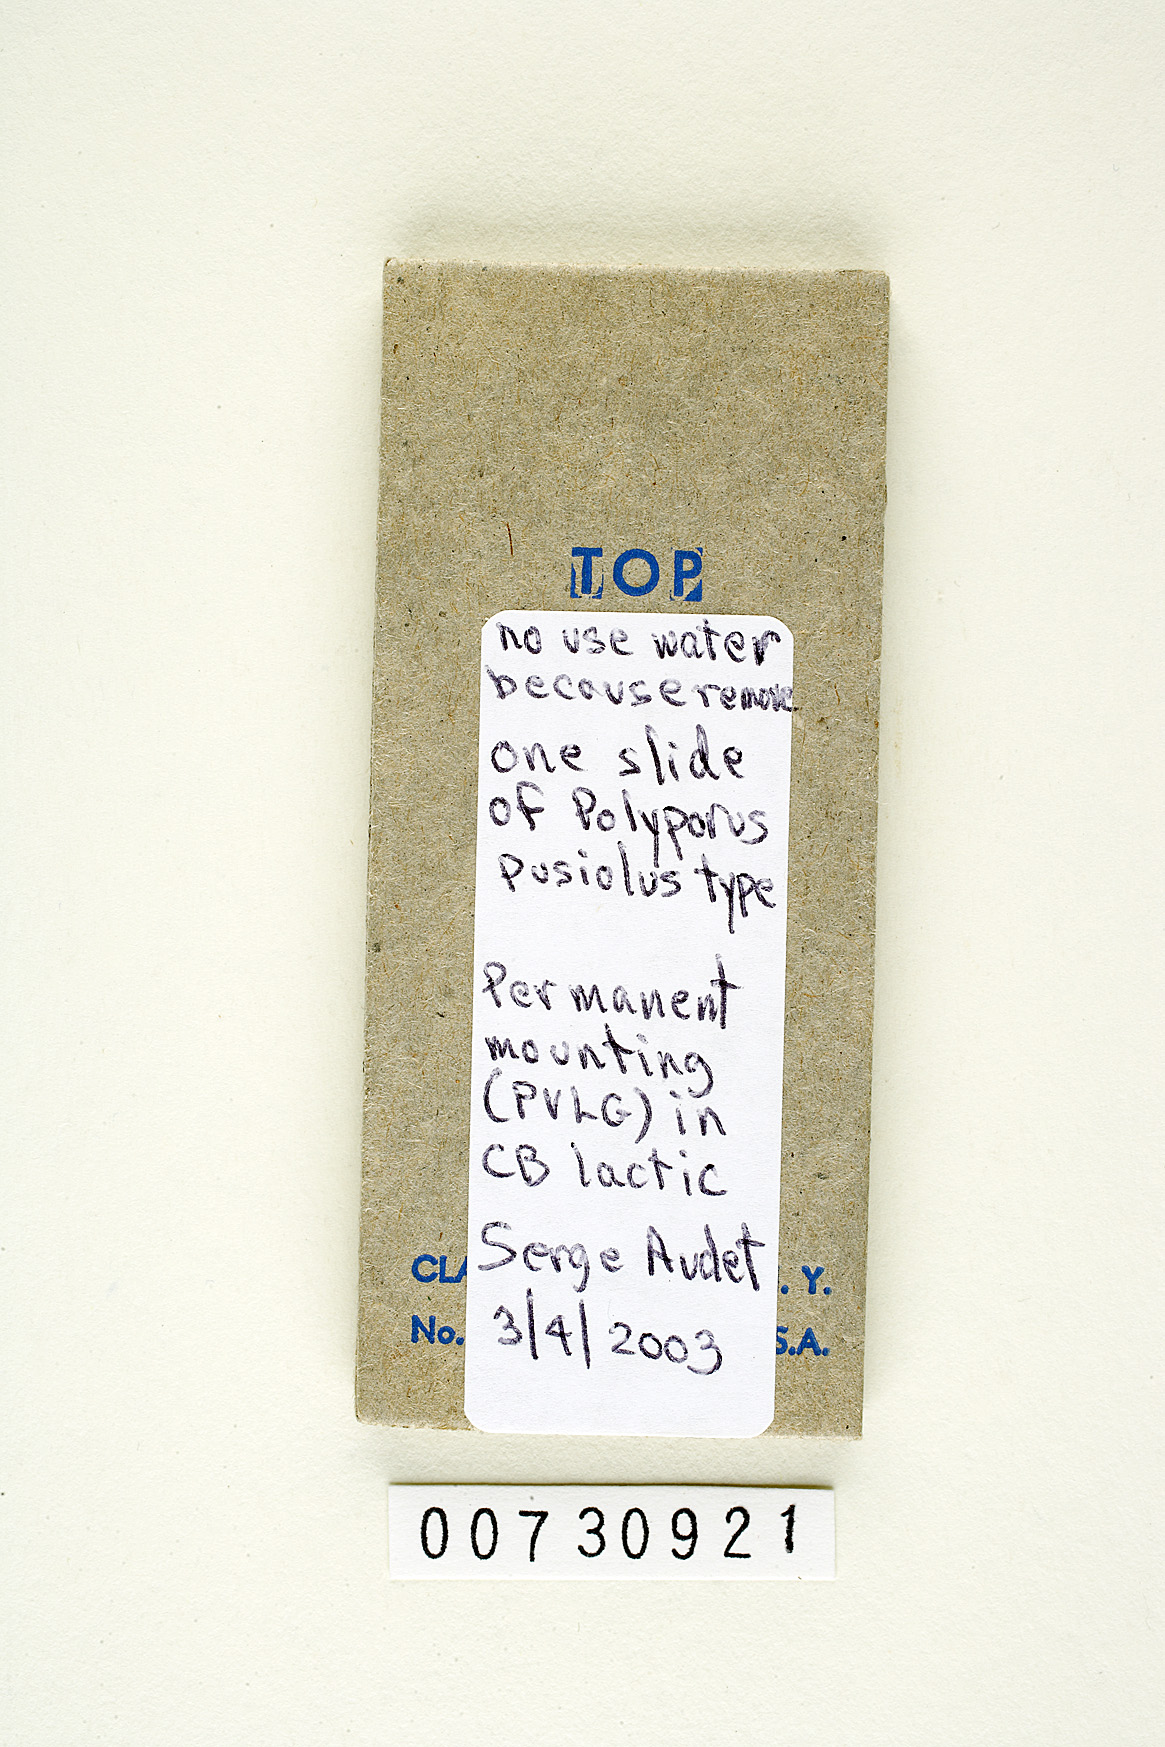 TOP
no use water
because remove
one slide
of Polyporus
pusiolus type
Permanent
mounting
(PVLG) in
CB lactic
Serge Audet
CLA . Y.
3/4/2003
No. S.A.
00730921